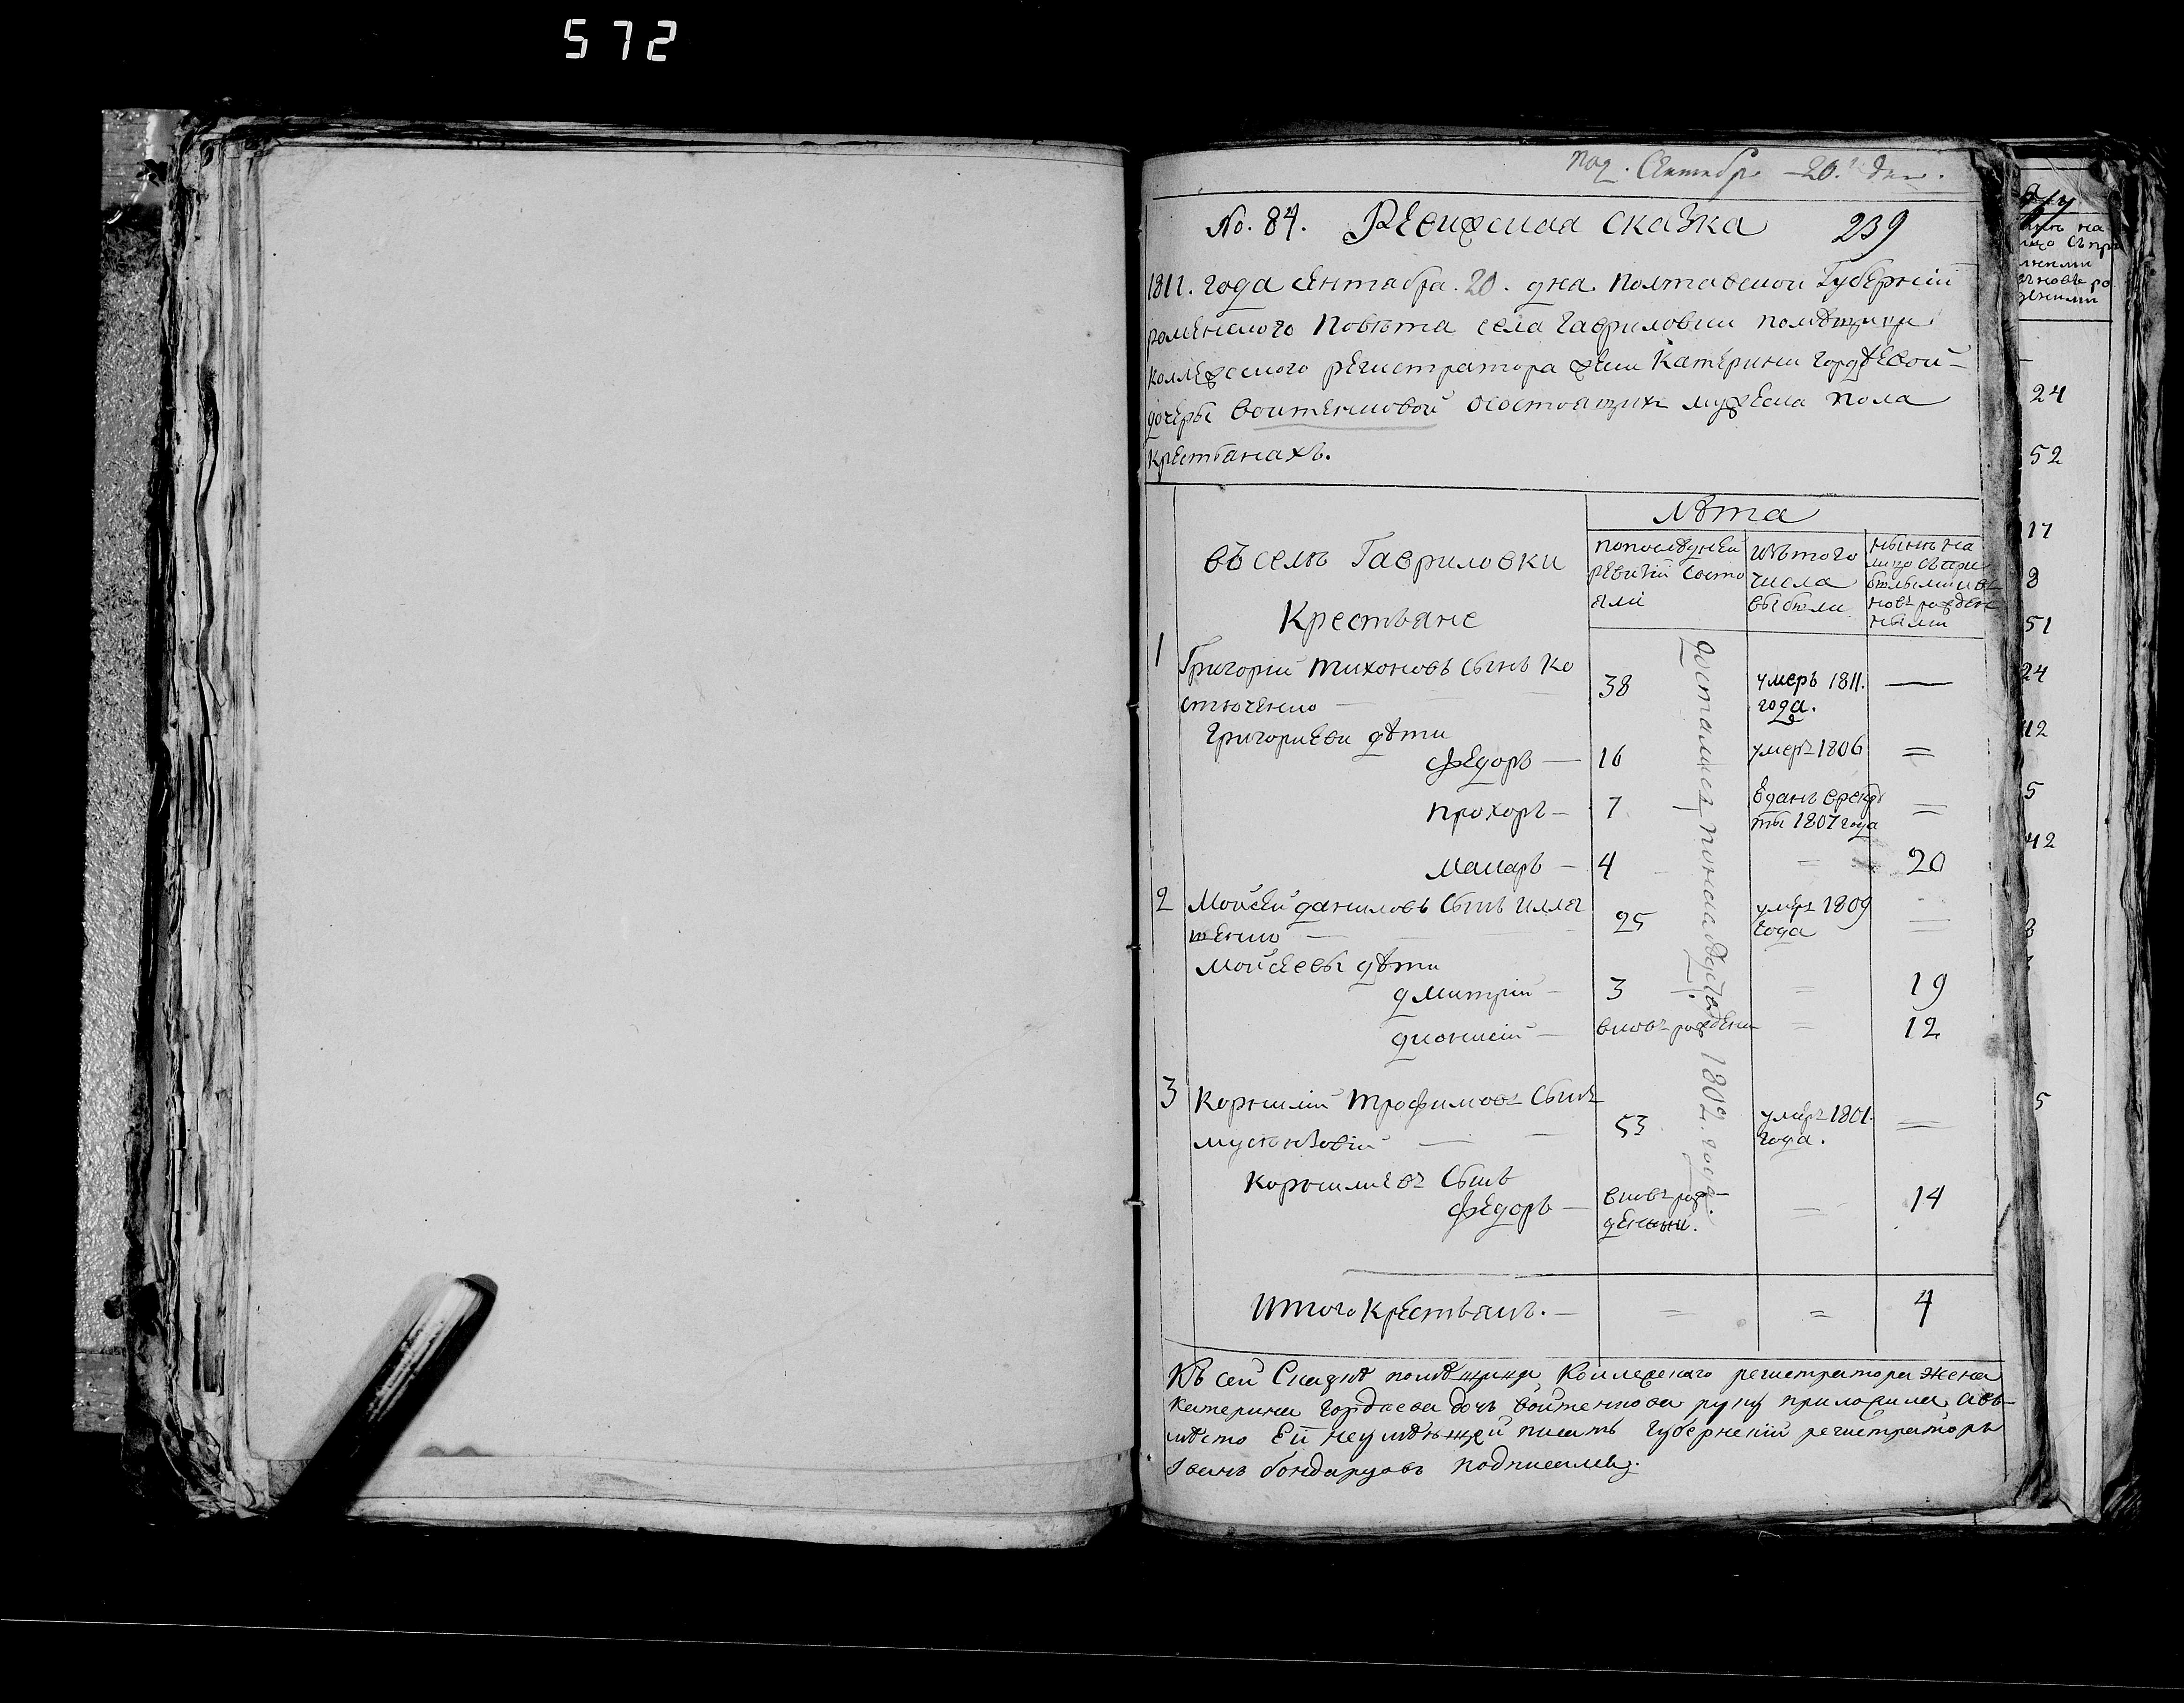 572
Сентября 20. дня.
No. 84. Ревижская сказка 239
1811. года сентабра. 20. дна. Полтавской Губерний
роменского Повѣта села Гавриловки помѣщици
коллежского регистратора жени Катерини Гордѣевой
дочеры Воитенковой осостоящих мужеска пола
крестьянахъ.
Лѣта
въ селѣ Гавриловки
Крестьяне
попослѣдней ревизій состояли
изъ того числа выбыли
нынѣ на лицо съ прибылыми и вновь рожденными
1 Григорий Тихоновъ сынъ Ко
стюченко — 38 умеръ 1811. года. —
Григориеви дѣти
Федоръ — 16 умеръ 1806 =
Прохоръ — 7 вданъ в рекруты 1807 года =
Макаръ — 4 = 20
2 Мойсей Даниловъ сынъ Илля
шенко — 25 умеръ 1809 года =
Мойсеевы дѣти
Дмитрий — 3 = 19
Дионисий — вновь рожден = 12
3 Корнилий Трофимовъ сынъ
— 53 умеръ 1801. года. =
Корнилиевъ сынъ
Федоръ — вновь рожденни. = 14
1802. года.
Итого крестьянъ. — = = 4
Къ сей Сказкѣ помѣщица Коллежского регистратора жена
Катерина Гордѣева дочь Войтенкова руку приложила, а вь
мѣсто Ей неумѣющей писать Губернский регистраторъ
Iванъ Бондаруовъ подписалъ.
24
52
17
8
51
24
42
5
42
3
5